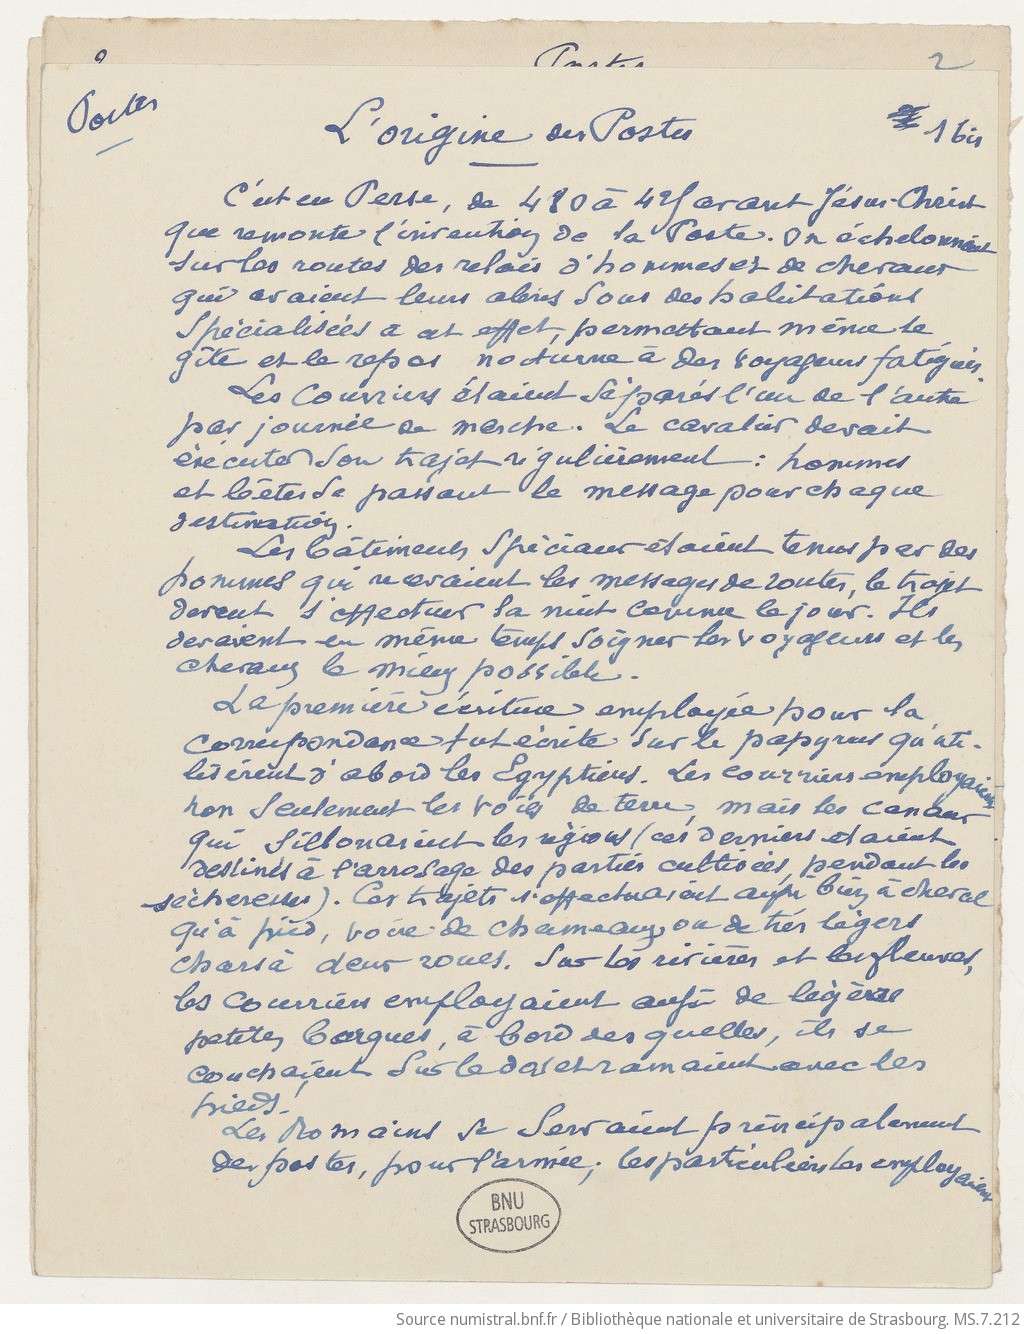 2
Postes
L'origine des Postes
1 bis
C'est en Perse, de 480 à 425 avant Jésus-Christ
que remonte l'invention de la Poste. On échelonnait
sur les routes des relais d'hommes et de chevaux
qui avaient leurs abris sous des habitations
spécialisées à cet effet, permettant même le
gîte et le repas nocturne à des voyageurs fatigués.
Les courriers étaient séparés l'un de l'autre
par journée de marche. Le cavalier devait
éxécuter son trajet régulièrement : hommes
et bêtes se passant le message pour chaque
destination.
Les bâtiments spéciaux étaient tenus par des
hommes qui recevaient les messages de routes, le trajet
devant s'effectuer la nuit comme le jour. Ils
devaient en même temps soigner les voyageurs et les
chevaux le mieux possible.
La première écriture employée pour la
correspondance fut écrite sur le papyrus qu'uti-
lisèrent d'abord les Egyptiens. Les courriers employaient
non seulement les voies de terre, mais les canaux
qui sillonaient les régions (ces derniers étaient
destinés à l'arrosage des parties cultivées, pendant les
sècheresses). Ces trajets s'effectuaient aussi bien à cheval
qu'à pied, voire de chameaux ou de très légers
chars à deux roues. Sur les rivières et les fleuves,
les courriers employaient aussi de légères
petites barques, à bord des quelles, ils se
couchaient sur le dos et ramaient avec les
pieds!
Les Romains se servaient principalement
des postes, pour l'armée; les particuliers les employaient
BNU
STRASBOURG
Source numistral.bnf.fr / Bibliothèque nationale et universitaire de Strasbourg. MS.7.212